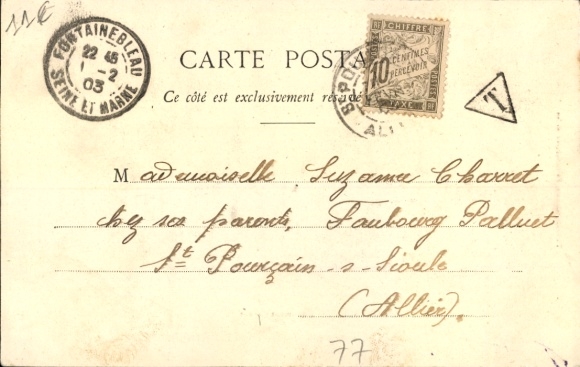 11€
FONTAINEBLEAU
22 45
1 -2
03
SEINE ET MARNE
CARTE POSTA
CHIFFRE
10 CENTIMES
À
PERCEVOIR
TAXE
T
Ce côté est exclusivement réservé
ALLI
Mademoiselle Suzanne Charret
chez ses parents, Faubourg Palluet
St Pourçain-s-Sioule
(Allier).
77